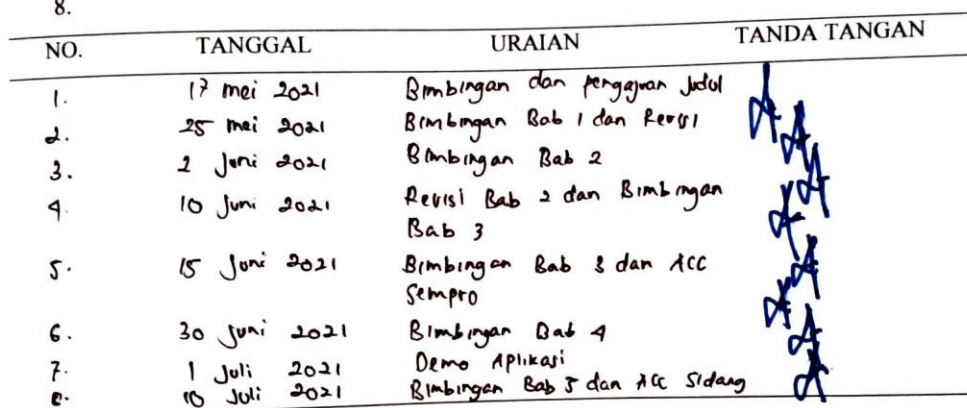 8.
NO. TANGGAL URAIAN TANDA TANGAN
1. 17 mei 2021 Bimbingan dan pengajuan Judul
2. 25 mei 2021 Bimbingan Bab 1 dan Revisi
3. 2 Juni 2021 Bimbingan Bab 2
4. 10 Juni 2021 Revisi Bab 2 dan Bimbingan
Bab 3
5. 15 Juni 2021 Bimbingan Bab 3 dan ACC
Sempro
6. 30 Juni 2021 Bimbingan Bab 4
7. 1 Juli 2021 Demo Aplikasi
8. 10 Juli 2021 Bimbingan Bab 5 dan ACC Sidang